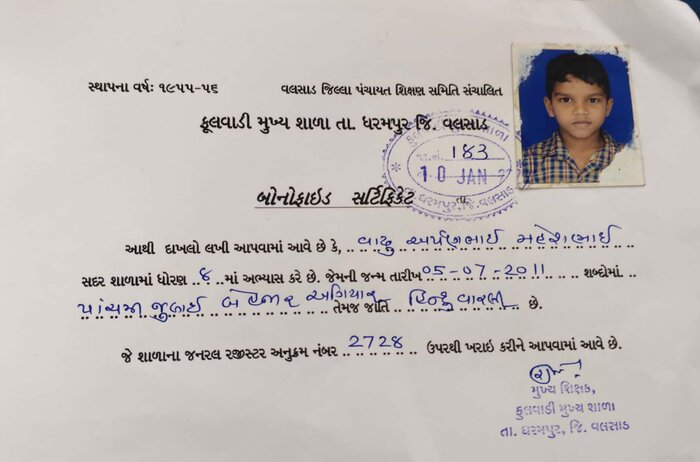 સ્થાપના વર્ષઃ ૧૯૫૫-૫૬
વલસાડ જિલ્લા પંચાયત શિક્ષણ સમિતિ સંચાલિત
ફૂલવાડી મુખ્ય શાળા તા. ધરમપુર જિ. વલસાડ
183
10 JAN
તા. ધરમપુર, જિ. વલસાડ
બોનોફાઇડ સર્ટિફિકેટ
આથી દાખલો લખી આપવામાં આવે છે કે, વાઢુ અર્પણભાઈ મહેશભાઈ
સદર શાળામાં ધોરણ ૪ માં અભ્યાસ કરે છે. જેમની જન્મ તારીખ 05-07-2011 શબ્દોમાં
પાંચમી જુલાઈ બે હજાર અગિયાર તેમજ જાતિ હિન્દુ વારલી છે.
જે શાળાના જનરલ રજીસ્ટર અનુક્રમ નંબર 2728 ઉપરથી ખરાઇ કરીને આપવામાં આવે છે.
મુખ્ય શિક્ષક,
ફુલવાડી મુખ્ય શાળા
તા. ધરમપુર, જિ. વલસાડ